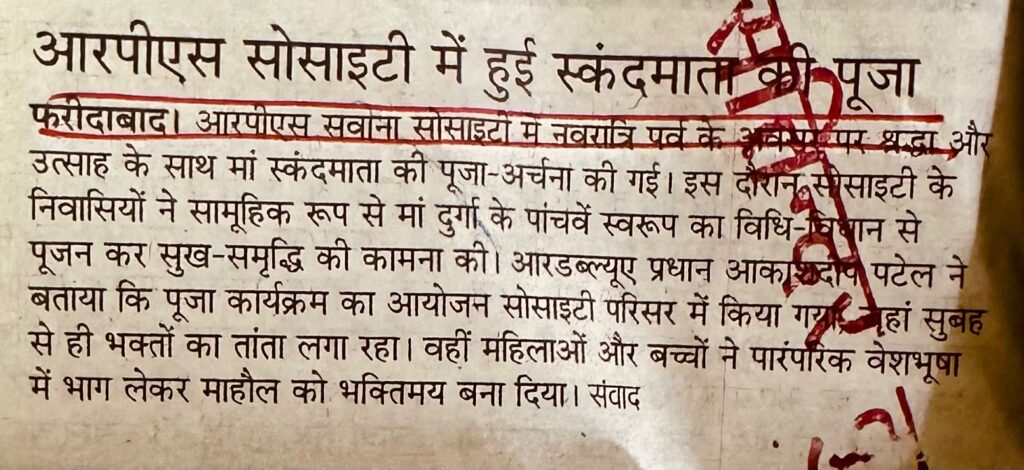 आरपीएस सोसाइटी में हुई स्कंदमाता की पूजा
फरीदाबाद। आरपीएस सवाना सोसाइटी में नवरात्रि पर्व के अवसर पर श्रद्धा और
उत्साह के साथ मां स्कंदमाता की पूजा-अर्चना की गई। इस दौरान सोसाइटी के
निवासियों ने सामूहिक रूप से मां दुर्गा के पांचवें स्वरूप का विधि-विधान से
पूजन कर सुख-समृद्धि की कामना की। आरडब्ल्यूए प्रधान आकाशदीप पटेल ने
बताया कि पूजा कार्यक्रम का आयोजन सोसाइटी परिसर में किया गया। यहां सुबह
से ही भक्तों का तांता लगा रहा। वहीं महिलाओं और बच्चों ने पारंपरिक वेशभूषा
में भाग लेकर माहौल को भक्तिमय बना दिया। संवाद